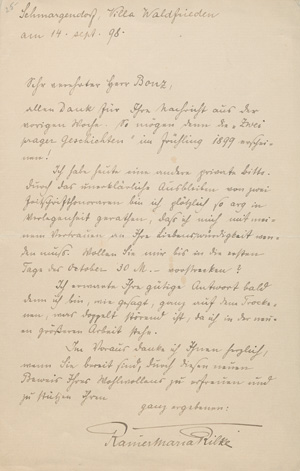 Schmargendorf, Villa Waldfrieden
am 14. sept. 98.
Sehr verehrter Herr Bonz,
allen Dank für Ihre Nachricht aus der
vorigen Woche. So mögen denn die „Zwei
prager Geschichten" im Frühling 1899 erschei-
nen!
Ich habe heute eine andere private bitte.
Durch das unerklärliche Ausbleiben von zwei
Zeitschrifthonoraren bin ich plötzlich so arg in
Verlegenheit gerathen, daß ich mich mit mei-
nem Vertrauen an Ihre Liebenswürdigkeit wen-
den muß. Wollen Sie mir bis in die ersten
Tage des October 30 M. vorstrecken?
Ich erwarte Ihre gütige Antwort bald
denn ich bin, wie gesagt, ganz auf dem Trocke-
nen, was doppelt störend ist, da ich in der neu-
en größeren Arbeit stehe.
Im Voraus danke ich Ihnen herzlich,
wenn Sie bereit sind, durch diesen neuen
Beweis Ihres Wohlwollens zu erfreuen und
zu stützen Ihren
ganz ergebenen:
Rainer Maria Rilke